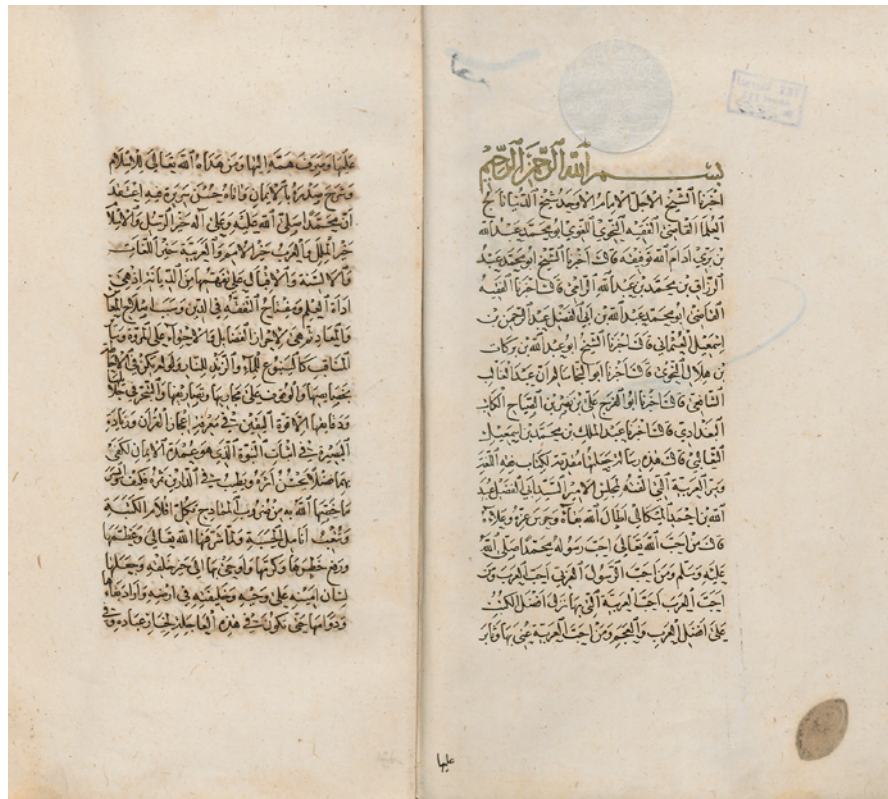 بسم الله الرحمن الرحيم
اخبرنا الشيخ الاجل الامام الاوحد شيخ الدنيا تاج
العلما القاضي الفقيه النحوي اللغوي ابو محمد عبد الله
بن بري ادام الله توفيقه قال اخبرنا الشيخ ابو محمد عبد
الرزاق بن محمد بن عبد الله قال اخبرنا الفقيه
القاضي ابو محمد عبد الله بن ابي الفضل عبد الرحمن بن
اسمعيل العثماني قال اخبرنا الشيخ ابو عبد الله بن بركات
بن هلال النحوي قال اخبرنا ابو
القاضي قال اخبرنا ابو الفرج علي بن نصر بن الصباح الكاتب
البغدادي قال اخبرنا عبد الملك بن محمد بن اسمعيل
الثعالبي قال هذه رسالة جعلها مقدمة لكتاب فقه اللغة
وسر العربية التي الفته لمجلس الامير السيد ابي الفضل عبيد
الله بن احمد الميكالي اطال الله بقاه وحرس عزه وعلاه
قال من احب الله تعالى احب رسوله محمدا صلى الله
عليه وسلم ومن احب الرسول العربي احب العرب ومن
احب العرب احب العربية التي بها نزل افضل الكتب
على افضل العرب والعجم ومن احب العربية عني بها وثابر
عليها
عليها وصرف همته اليها ومن هداه الله تعالى للاسلام
وشرح صدره بالايمان واتاه حسن سريرة فيه اعتقد
ان محمدا صلى الله عليه وعلى آله خير الرسل والاسلام
خير الملل والعرب خير الامم والعربية خير اللغات
والالسنة والاقبال على تفهمها من الديانة اذ هي
اداة العلم ومفتاح التفقه في الدين وسبب اصلاح المعاش
والمعاد ثم هي لاحراز الفضايل والاحتواء على المروة وساير
المناقب كالينبوع للماء والزند للنار ولو لم يكن في الاحاطة
بخصايصها والوقوف على مجاريها وتصاريفها والتبحر في جلايلها
ودقايقها الا قوة اليقين في معرفة اعجاز القران وزيادة
البصيرة في اثبات النبوة الذي هو عمدة الايمان لكفى
بهما فضلا يحسن اثره ويطيب في الدارين ثمره فكيف وايسر
ما خصها الله به من ضروب الممادح يكل اقلام الكتبة
ويتعب انامل الحسبة ولما شرفها الله تعالى وعظمها
ورفع خطرها وكرمها واوحى بها الى خير خلقه وجعلها
لسان امينه على وحيه وخليفته في ارضه واراد بقاها
ودوامها حتى تكون في هذه العاجلة لخيار عباده وفي